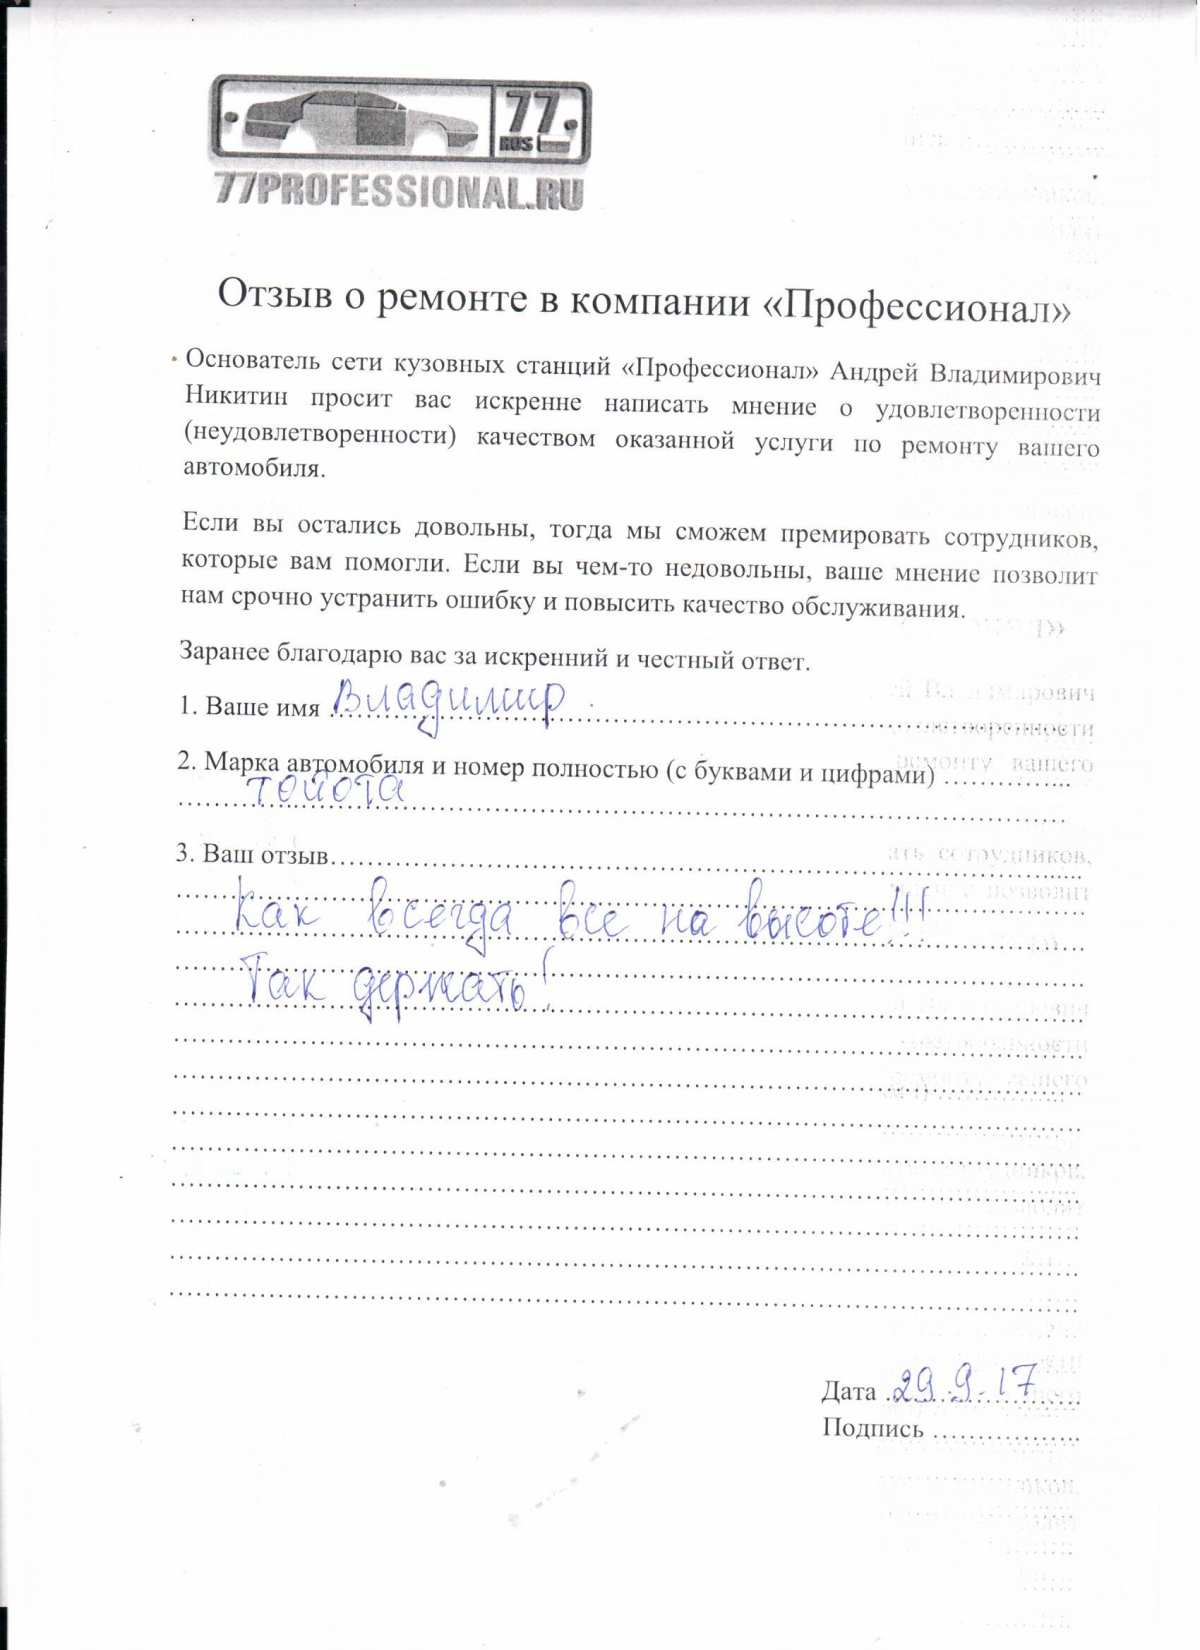 77
RUS
77PROFESSIONAL.RU
Отзыв о ремонте в компании «Профессионал»
Основатель сети кузовных станций «Профессионал» Андрей Владимирович
Никитин просит вас искренне написать мнение о удовлетворенности
(неудовлетворенности) качеством оказанной услуги по ремонту вашего
автомобиля.
Если вы остались довольны, тогда мы сможем премировать сотрудников,
которые вам помогли. Если вы чем-то недовольны, ваше мнение позволит
нам срочно устранить ошибку и повысить качество обслуживания.
Заранее благодарю вас за искренний и честный ответ.
1. Ваше имя Владимир
2. Марка автомобиля и номер полностью (с буквами и цифрами)
тойота
3. Ваш отзыв
Как всегда все на высоте!!!
Так держать!
Дата 29.9.17
Подпись